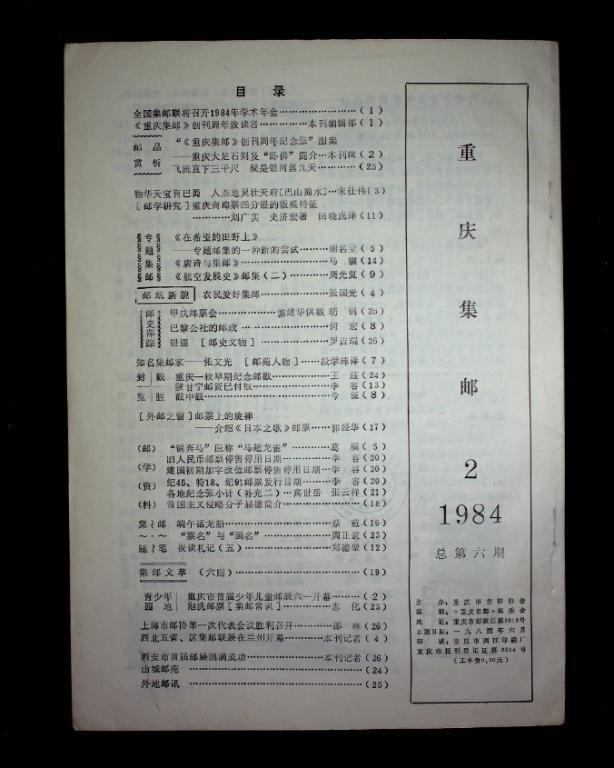 目 录
全国集邮联将召开1984年学术年会……(1)
《重庆集邮》创刊周年致读者……本刊编辑部(1)
邮品赏析
“《重庆集邮》创刊周年纪念张”图案
——重庆大足石刻及“卧佛”简介…本刊编(2)
飞流直下三千尺 疑是银河落九天……(25)
物华天宝育巴蜀 人杰地灵壮天府[巴山蜀水]…宋仕伟(3)
[邮学研究]重庆商埠票四分银的版模特征
……刘广实 史济宏著 田晓虎译(11)
专题集邮
《在希望的田野上》
——专题邮集的一种新的尝试……谢名立(5)
《唐诗与集邮》……马骥(14)
《航空发展史》邮集(二)……周光复(9)
邮坛新貌 农民爱好集邮……张国光(4)
邮史萍踪
甲戌邮票会……郭建华供戳 (26)
巴黎公社的邮政……何宏(8)
银镊 [邮史文物]……罗吉瑞(26)
知名集邮家——张文光 [邮苑人物]……段学玮译(7)
封戳 重庆一枚早期纪念邮戳……王珏(24)
陕甘宁邮资已付戳……李容(13)
览胜 戳中戳……今流(8)
[外邮之窗]邮票上的旋律
——介绍《日本之歌》邮票……郭经华(17)
(邮) “铜奔马”应称“马超龙雀”……葛 (5)
旧人民币邮票停售停用日期……李容(20)
(学) 建国初期加字改值邮票停售停用日期…李容(20)
(资) 纪45、特18、纪91邮票发行日期……李容(20)
各地纪念张小计(补充二)…真世岳 张云祥(21)
(料) 帝国主义侵略分子赫德简介……(18)
集邮 端午话龙船……蔡 (16)
“票名”与“画名”……周正谊(23)
随笔 夜读札记(五)……郑德莹(12)
集邮文萃 (六则)……(19)
青少年园地
重庆市首届少年儿童邮展六一开幕……(2)
泡洗邮票[集邮常识]……志化(23)
上海市邮协第一次代表会议胜利召开……邵林(26)
西北五省、区集邮联展在兰州开幕……本刊记者(4)
西安市首届邮展圆满成功……本刊记者(26)
山城邮苑……(24)
外地邮讯……(25)
重庆集邮
2
1984
总第六期
主办：重庆市集邮协会
编辑：《重庆集邮》编委会
地址：重庆市邮政信箱5019号
出版日期：一九八四年六月
印刷：重庆市两江印刷厂
重庆市报刊登记证第0014号
(工本费0.30元)